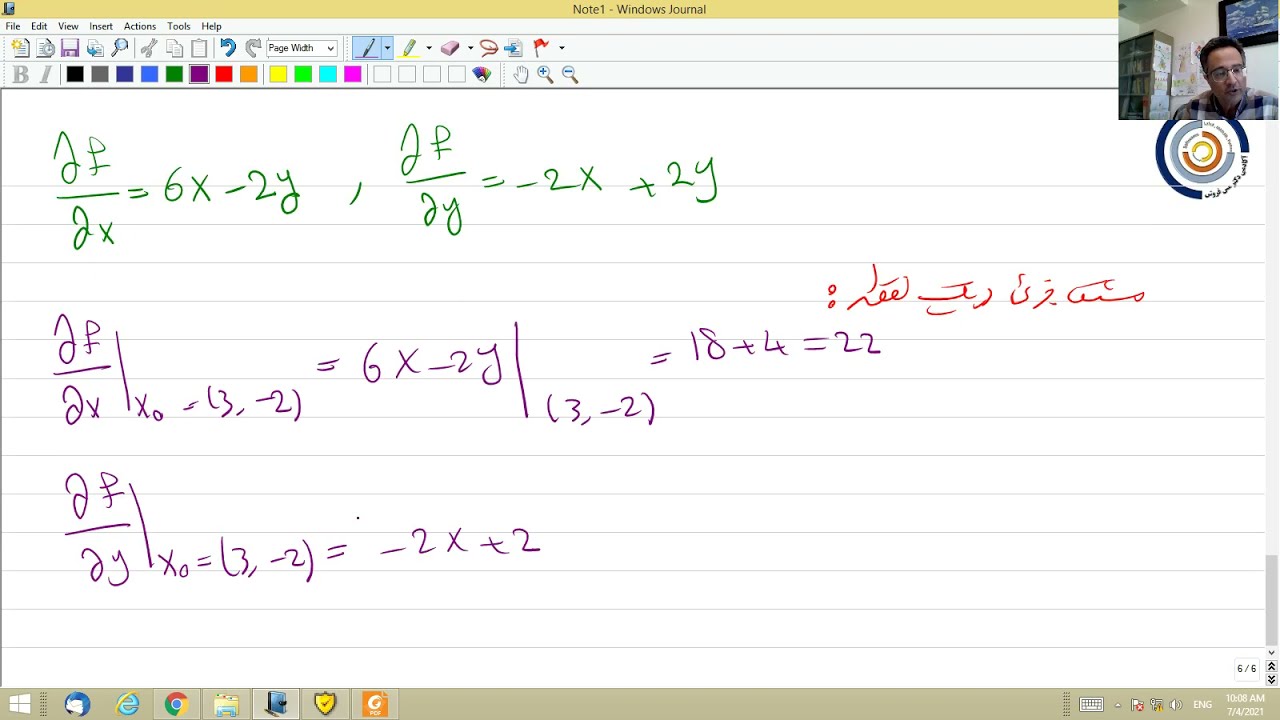 Note1 - Windows Journal
File Edit View Insert Actions Tools Help
Page Width
B I
∂f/∂x = 6x - 2y , ∂f/∂y = -2x + 2y
مشتق جزئی در یک نقطه :
∂f/∂x | x₀ = (3, -2) = 6x - 2y | (3, -2) = 18 + 4 = 22
∂f/∂y | x₀ = (3, -2) = -2x + 2
6 / 6
PDF
ENG
10:08 AM
7/4/2021